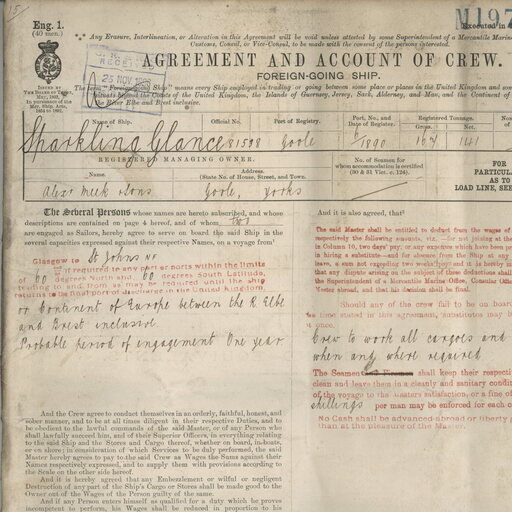 15/
Eng. 1.
(40 men.)
M197
Executed in
Any Erasure, Interlineation, or Alteration in this Agreement will be void unless attested by some Superintendent of a Mercantile Marine
Customs, Consul, or Vice-Consul, to be made with the consent of the persons interested.
AGREEMENT AND ACCOUNT OF CREW.
FOREIGN-GOING SHIP.
ISSUED BY
THE BOARD OF TRADE,
In pursuance of the
Mer. Ship. Acts,
25 NOV
The term "Foreign-going Ship" means every Ship employed in trading or going between some place or places in the United Kingdom and some
of the United Kingdom, the Islands of Guernsey, Jersey, Sark, Alderney, and Man, and the Continent of
the River Elbe and Brest inclusive.
Name of Ship.
Official No.
Port of Registry.
Port, No., and Date of Register.
Registered Tonnage.
Gross.
Net.
Sparkling Glance 81598 Goole 1890 164 141
REGISTERED MANAGING OWNER.
No. of Seamen for
whom accommodation is certified
(30 & 31 Vict. c. 124).
FOR
PARTICULA
AS TO
LOAD LINE, SEE
Name.
Address.
(State No. of House, Street, and Town).
Alexr Meek & Sons Goole, Yorks
The Several Persons whose names are hereto subscribed, and whose
descriptions are contained on page 4 hereof, and of whom
are engaged as Sailors, hereby agree to serve on board the said Ship in the
several capacities expressed against their respective Names, on a voyage from
Glasgow to St Johns
if required to any port or ports within the limits
of 60 degrees North and 60 degrees South Latitude,
trading to and from as may be required until the ship
returns to the final port of discharge in the United Kingdom,
or Continent of Europe between the R Elbe
and Brest inclusive.
Probable period of engagement One year
And the Crew agree to conduct themselves in an orderly, faithful, honest, and
sober manner, and to be at all times diligent in their respective Duties, and to
be obedient to the lawful commands of the said Master, or of any Person who
shall lawfully succeed him, and of their Superior Officers, in everything relating
to the said Ship and the Stores and Cargo thereof, whether on board, in boats,
or on shore; in consideration of which Services to be duly performed, the said
Master hereby agrees to pay to the said Crew as Wages the Sums against their
Names respectively expressed, and to supply them with provisions according to
the Scale on the other side hereof.
And it is hereby agreed that any Embezzlement or wilful or negligent
Destruction of any part of the Ship's Cargo or Stores shall be made good to the
Owner out of the Wages of the Person guilty of the same.
And if any Person enters himself as qualified for a duty which he proves
incompetent to perform, his Wages shall be reduced in proportion to his
And it is also agreed, that
The said Master shall be entitled to deduct from the wages of
respectively the following amounts, viz. — for not joining at the
in Column 10, two days' pay, or any expenses which have been pr
in hiring a substitute—and for absence from the Ship at any
leave, a sum not exceeding two weeks' pay; and it is hereby m
that any dispute arising on the subject of these deductions shall
the Superintendent of a Mercantile Marine Office, Consular Office
Master abroad, and that his decision shall be final.
Should any of the crew fail to be on board
time stated in this agreement, substitutes may b
once.
Crew to work all cargoes and
when and where required
The Seamen and Firemen shall keep their respective
clean and leave them in a cleanly and sanitary condition
of the voyage to the masters satisfaction, or a fine of
shillings per man may be enforced for each o
No Cash shall be advanced abroad or liberty g
than at the pleasure of the Master.